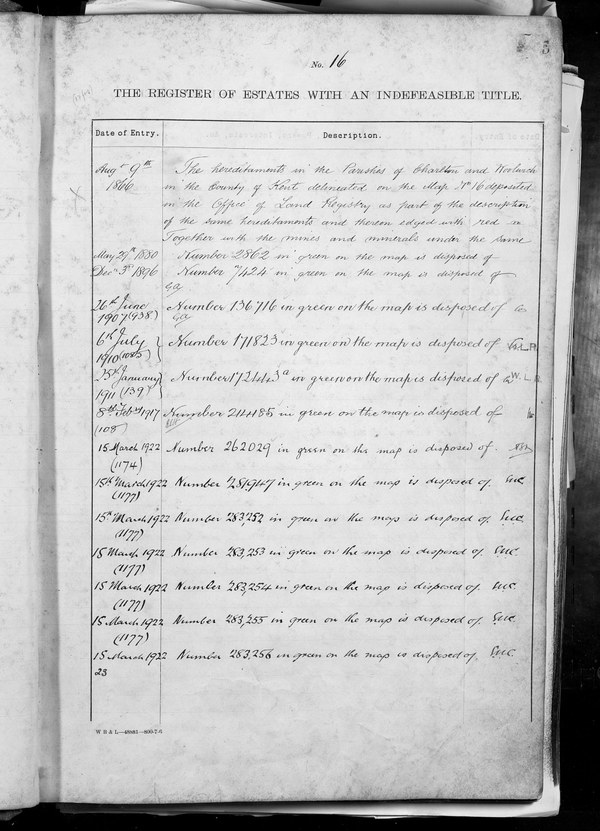 No. 16
THE REGISTER OF ESTATES WITH AN INDEFEASIBLE TITLE.
Date of Entry. Description.
Augt 9th 1866 The hereditaments in the Parishes of Charlton and Woolwich
in the County of Kent delineated on the Map No 16 deposited
in the Office of Land Registry as part of the description
of the same hereditaments and thereon edged with red
Together with the mines and minerals under the same
May 29th 1880 Number 2862 in green on the map is disposed of
Decr 3rd 1896 Number 7424 in green on the map is disposed of
26th June Number 136716 in green on the map is disposed of
1907 (938)
6th July Number 171823 in green on the map is disposed of
1910 (1085)
25th January Number 172443a in green on the map is disposed of W. L.
1911 (139)
8th Feby 1917 Number 214185 in green on the map is disposed of
(108
15 March 1922 Number 262029 in green on the map is disposed of.
(1174)
15th March 1922 Number 281947 in green on the map is disposed of.
(1177)
15th March 1922 Number 283,252 in green on the map is disposed of.
(1177)
15 March 1922 Number 283,253 in green on the map is disposed of.
(1177)
15 March 1922 Number 283,254 in green on the map is disposed of.
(1177)
15 March 1922 Number 283,255 in green on the map is disposed of.
(1177)
15 March 1922 Number 283,256 in green on the map is disposed of.
23
W B & L—